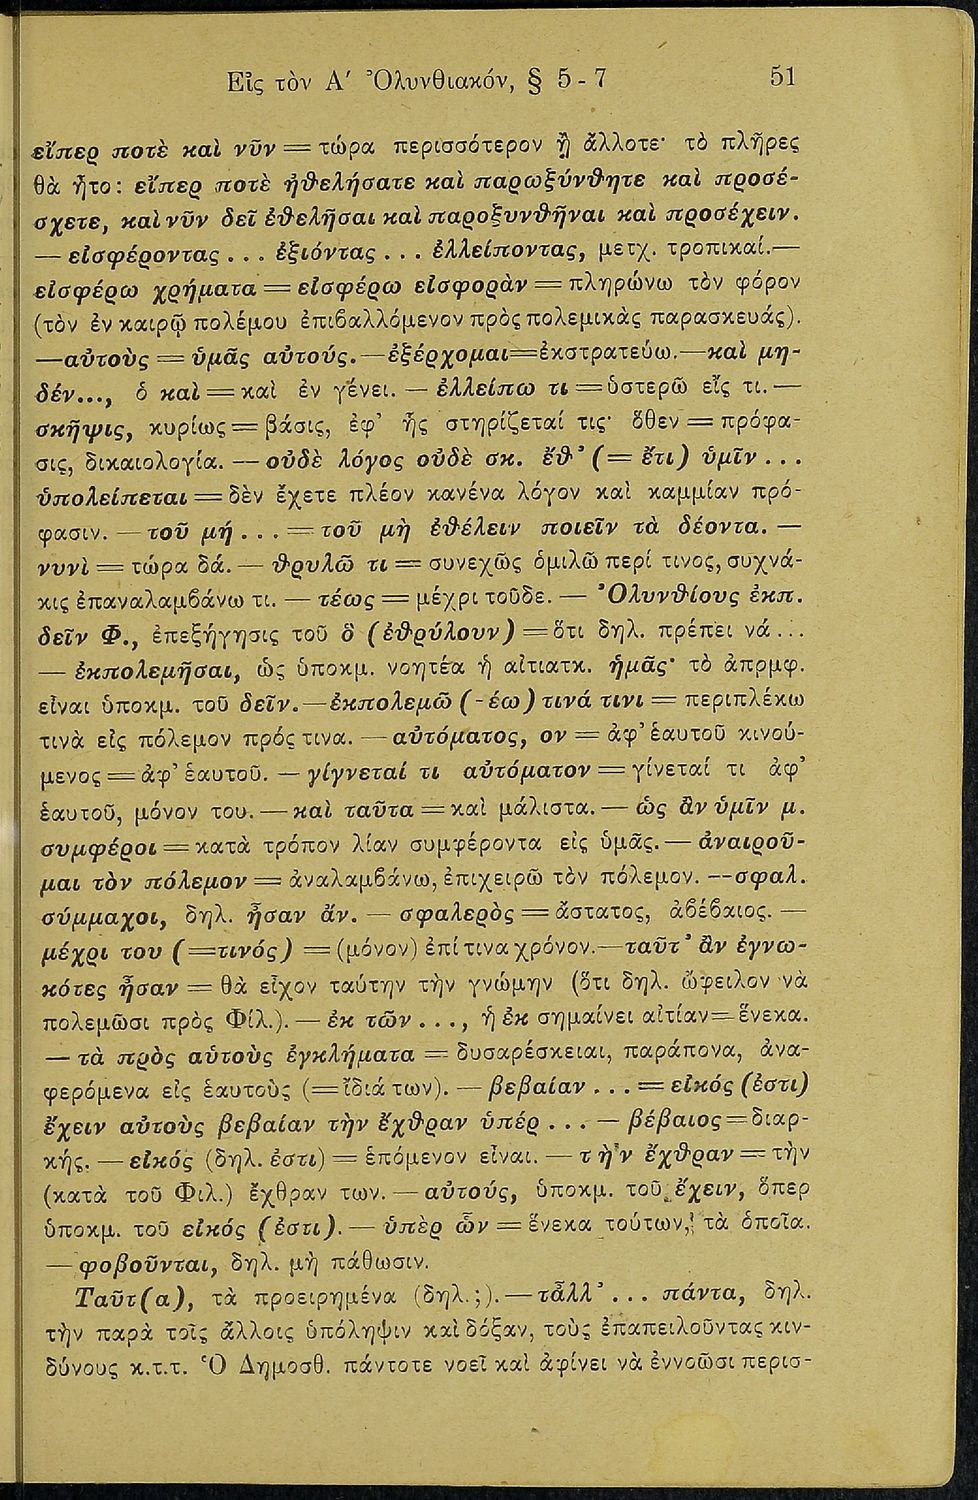 Εἰς τὸν Α΄ Ὀλυνθιακόν, § 5 - 7 51
εἴπερ ποτὲ καὶ νῦν = τώρα περισσότερον ἢ ἄλλοτε· τὸ πλῆρες
θὰ ἦτο: εἴπερ ποτὲ ἠθελήσατε καὶ παρωξύνθητε καὶ προσέ-
σχετε, καὶ νῦν δεῖ ἐθελῆσαι καὶ παροξυνθῆναι καὶ προσέχειν.
— εἰσφέροντας . . . ἐξιόντας . . . ἐλλείποντας, μετχ. τροπικαί.—
εἰσφέρω χρήματα = εἰσφέρω εἰσφορὰν = πληρώνω τὸν φόρον
(τὸν ἐν καιρῷ πολέμου ἐπιβαλλόμενον πρὸς πολεμικὰς παρασκευάς).
—αὐτοὺς = ὑμᾶς αὐτούς.—ἐξέρχομαι=ἐκστρατεύω.—καὶ μη-
δέν..., ὁ καὶ = καὶ ἐν γένει. — ἐλλείπω τι = ὑστερῶ εἴς τι. —
σκῆψις, κυρίως = βάσις, ἐφ' ἧς στηρίζεταί τις· ὅθεν = πρόφα-
σις, δικαιολογία. — οὐδὲ λόγος οὐδὲ σκ. ἔθ' (= ἔτι) ὑμῖν . . .
ὑπολείπεται = δὲν ἔχετε πλέον κανένα λόγον καὶ καμμίαν πρό-
φασιν. — τοῦ μή . . . = τοῦ μὴ ἐθέλειν ποιεῖν τὰ δέοντα. —
νυνὶ = τώρα δά. — θρυλῶ τι = συνεχῶς ὁμιλῶ περί τινος, συχνά-
κις ἐπαναλαμβάνω τι. — τέως = μέχρι τοῦδε. — Ὀλυνθίους ἐκπ.
δεῖν Φ., ἐπεξήγησις τοῦ ὃ (ἐθρύλουν) = ὅτι δηλ. πρέπει νά...
— ἐκπολεμῆσαι, ὡς ὑποκμ. νοητέα ἡ αἰτιατκ. ἡμᾶς· τὸ ἀπρμφ.
εἶναι ὑποκμ. τοῦ δεῖν.—ἐκπολεμῶ (-έω) τινά τινι = περιπλέκω
τινὰ εἰς πόλεμον πρός τινα. — αὐτόματος, ον = ἀφ' ἑαυτοῦ κινού-
μενος = ἀφ' ἑαυτοῦ. — γίγνεταί τι αὐτόματον = γίνεταί τι ἀφ'
ἑαυτοῦ, μόνον του. — καὶ ταῦτα = καὶ μάλιστα. — ὡς ἂν ὑμῖν μ.
συμφέροι = κατὰ τρόπον λίαν συμφέροντα εἰς ὑμᾶς. — ἀναιροῦ-
μαι τὸν πόλεμον = ἀναλαμβάνω, ἐπιχειρῶ τὸν πόλεμον. —σφαλ.
σύμμαχοι, δηλ. ἦσαν ἄν. — σφαλερὸς = ἄστατος, ἀβέβαιος. —
μέχρι του (=τινός) = (μόνον) ἐπί τινα χρόνον.—ταῦτ' ἂν ἐγνω-
κότες ἦσαν = θὰ εἶχον ταύτην τὴν γνώμην (ὅτι δηλ. ὤφειλον νὰ
πολεμῶσι πρὸς Φίλ.). — ἐκ τῶν . . ., ἡ ἐκ σημαίνει αἰτίαν=ἕνεκα.
— τὰ πρὸς αὑτοὺς ἐγκλήματα = δυσαρέσκειαι, παράπονα, ἀνα-
φερόμενα εἰς ἑαυτοὺς (=ἴδιά των). — βεβαίαν . . . = εἰκός (ἐστι)
ἔχειν αὐτοὺς βεβαίαν τὴν ἔχθραν ὑπέρ . . . — βέβαιος=διαρ-
κής. — εἰκός (δηλ. ἐστι) = ἑπόμενον εἶναι. — τὴν ἔχθραν = τὴν
(κατὰ τοῦ Φιλ.) ἔχθραν των. — αὐτούς, ὑποκμ. τοῦ ἔχειν, ὅπερ
ὑποκμ. τοῦ εἰκός (ἐστι). — ὑπὲρ ὧν = ἕνεκα τούτων, τὰ ὁποῖα.
— φοβοῦνται, δηλ. μὴ πάθωσιν.
Ταῦτ(α), τὰ προειρημένα (δηλ.;).—τἆλλ' . . . πάντα, δηλ.
τὴν παρὰ τοῖς ἄλλοις ὑπόληψιν καὶ δόξαν, τοὺς ἐπαπειλοῦντας κιν-
δύνους κ.τ.τ. Ὁ Δημοσθ. πάντοτε νοεῖ καὶ ἀφίνει νὰ ἐννοῶσι περισ-